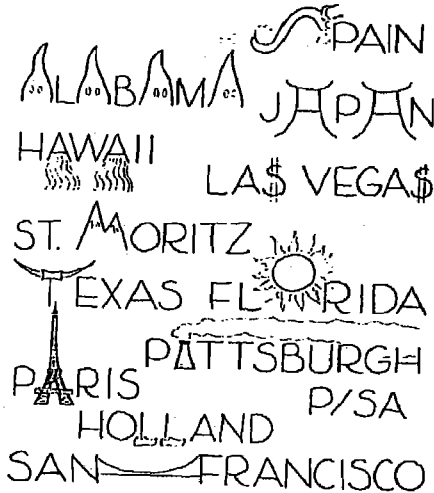 SPAIN
ALABAMA
JAPAN
HAWAII
LA$ VEGA$
ST. MORITZ
TEXAS FLORIDA
PITTSBURGH
PARIS
P/SA
HOLLAND
SAN FRANCISCO